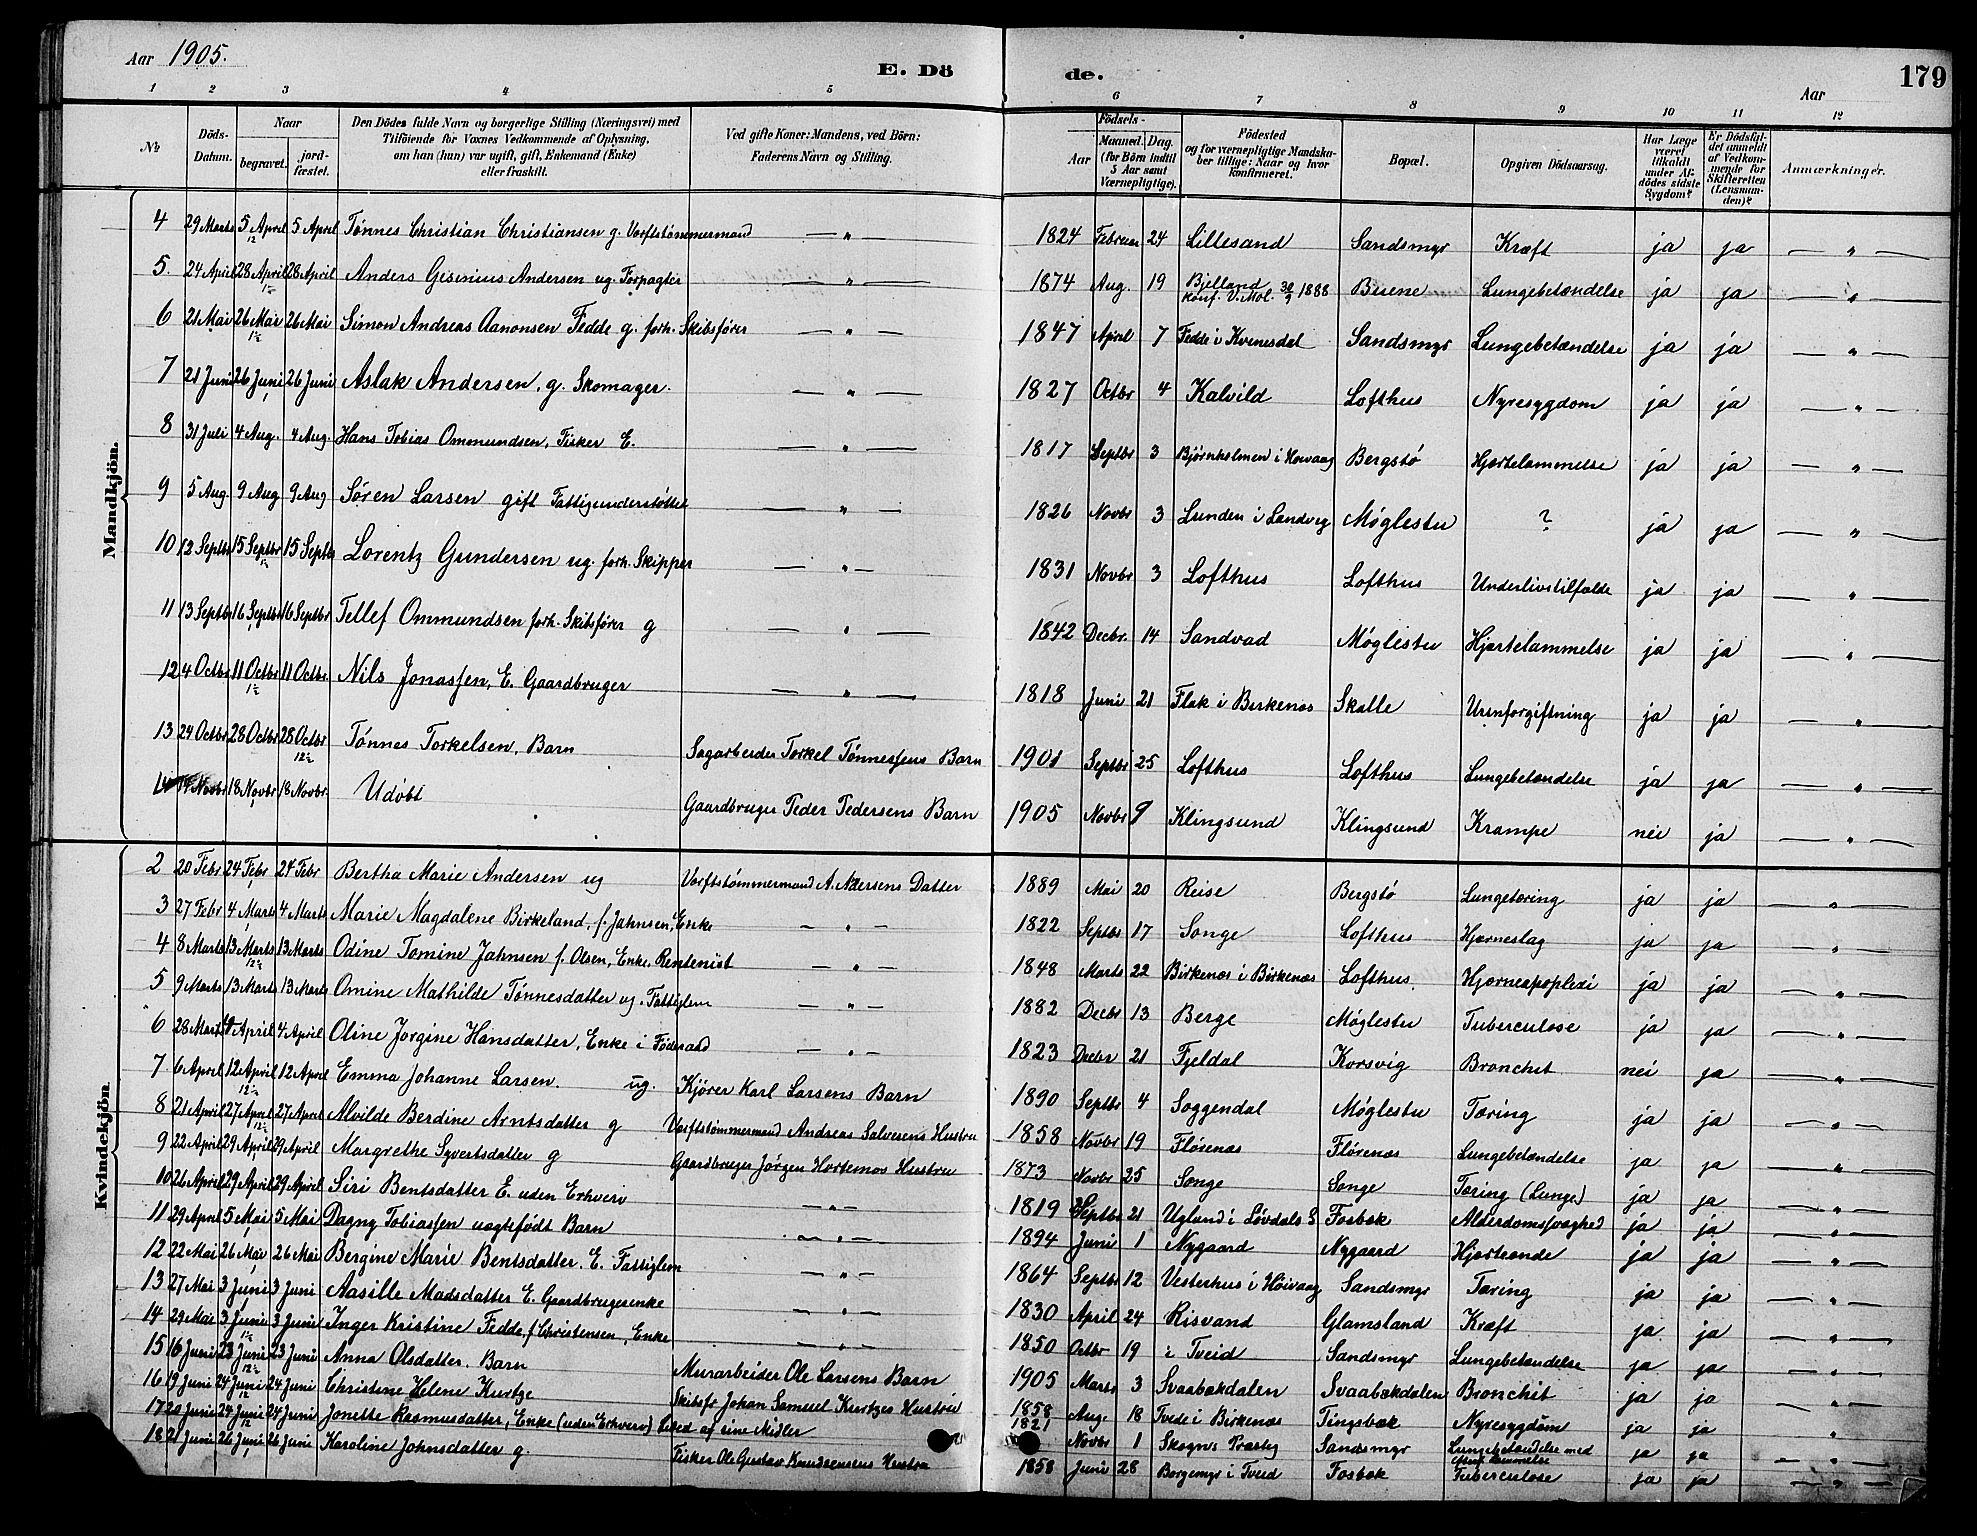 Aar 1905.
E. Dö
de.
179
Aar
1 2 3 4 5 6 7 8 9 10 11 12
№
Döds-Datum.
Naar
begravet.
jord-fæstet.
Den Dödes fulde Navn og borgerlige Stilling (Næringsvei) med
Tilföiende for Voxnes Vedkommende af Oplysning,
om han (hun) var ugift, gift, Enkemand (Enke)
eller fraskilt.
Ved gifte Koner: Mandens, ved Börn:
Faderens Navn og Stilling.
Födsels-
Aar
Maaned. Dag.
(for Börn indtil
5 Aar samt
Værnepligtige).
Födested
og for værnepligtige Mandska-
ber tillige: Naar og hvor
konfirmeret.
Bopæl.
Opgiven Dödsaarsag.
Har Læge
været
tilkaldt
under Af-
dödes sidste
Sygdom?
Er Dödsfal-
det anmeldt
af Vedkom-
mende for
Skifteretten
(Lensman-
den)?
Anmærkninger.
Mandkjön.
4 29 Marts 5 April 5 April Tønnes Christian Christiansen g. Verftstømmermand — " — 1824 Februar 24 Lillesand Sandsmyr Kræft ja ja — " —
5. 24 April 28 April 28 April Anders Gisinius Andersen ug. Forpagter — " — 1874 Aug. 19 Bjelland konf. V. Mol. 30/9 1888 Buene Lungebetændelse ja ja — " —
6 21 Mai 26 Mai 26 Mai Simon Andreas Aanonsen Fedde g. forh. Skibsfører — " — 1847 April 7 Fedde i Kvinesdal Sandsmyr Lungebetændelse ja ja — " —
7 21 Juni 26 Juni 26 Juni Aslak Andersen, g. Skomager. — " — 1827 Octbr 4 Kalvild Lofthus Nyresygdom ja ja — " —
8 31 Juli 4 Aug. 4 Aug. Hans Tobias Ommundsen, Fisker E. — " — 1817 Septbr 3 Bjørnholmen i Høivaag Bergstø Hjertelammelse ja ja — " —
9 5 Aug. 9 Aug 9 Aug Søren Larsen gift Fattigunderstøttet — " — 1826 Novbr 3 Lunden i Landvig Møglestu ? ja ja — " —
10 12 Septbr 15 Septbr 15 Septbr Lorentz Gundersen ug. forh. Skipper — " — 1831 Novbr 3 Lofthus Lofthus Underlivstilfælde ja ja — " —
11 13 Septbr 16 Septbr 16 Septbr Tellef Ommundsen forh. Skibsfører g — " — 1842 Decbr. 14 Sandvad Møglestu Hjertelammelse ja ja — " —
12 4 Octbr 11 Octbr 11 Octbr. Nils Jonassen, E. Gaardbruger — " — 1818 Juni 21 Flak i Birkenæs Skalle Urinforgiftning ja ja — " —
13 24 Octbr 28 Octbr 28 Octbr Tønnes Torkelsen, Barn Sagarbeider Torkel Tønnessens Barn 1901 Septbr 25 Lofthus Lofthus Lungebetændelse ja ja — " —
14 Novbr 18 Novbr 18 Novbr. Udøbt Gaardbruger Peder Pedersens Barn 1905 Novbr 9 Klingsund Klingsund Krampe nei ja — " —
Kvindekjön
2 20 Febr 24 Febr 24 Febr Bertha Marie Andersen ug Verftstømmermand A. Andersens Datter 1889 Mai 20 Reise Bergstø Lungetæring ja ja — " —
3 27 Febr 4 Marts 4 Marts Marie Magdalene Birkeland, f. Jahnsen, Enke — " — 1822 Septbr 17 Songe Lofthus Hjerneslag ja ja — " —
4 8 Marts 13 Marts 13 Marts Odine Tomine Jahnsen f. Olsen, Enke, Rentenist — " — 1848 Marts 22 Birkenæs i Birkenæs Lofthus Hjerneapoplexi ja ja — " —
5 9 Marts 13 Marts 13 Marts Omine Mathilde Tønnesdatter ug. Fattiglem — " — 1882 Decbr 13 Berge Møglestu Tuberculose ja ja — " —
6 28 Marts 4 April 4 April Oline Jørgine Hansdatter, Enke i Føderaad — " — 1823 Decbr 21 Fjeldal Korsvig Bronchit nei ja — " —
7 6 April 12 April 12 April Emma Johanne Larsen. ug. Kjører Karl Larsens Barn 1890 Septbr 4 Soggendal Møglestu Tæring ja ja — " —
8 21 April 27 April 27 April Alvilde Berdine Arntsdatter g Verftstømmermand Andreas Salvesens Hustru 1858 Novbr 19 Flørenæs Flørenæs Lungebetændelse ja ja — " —
9 22 April 29 April 29 April Margrethe Syvertsdatter g Gaardbruger Jørgen Hortemos Hustru 1873 Novbr 25 Songe Songe Tæring (Lunge) ja ja — " —
10 26 April 29 April 29 April Siri Bentsdatter E. uden Erhverv — " — 1819 Septbr 21 Ugland i Løvdals S Fosbæk Alderdomssvaghed ja ja — " —
11 29 April 5 Mai 5 Mai Dagny Tobiassen uægtefødt Barn — " — 1894 Juni 1 Nygaard Nygaard Hjerteonde ja ja — " —
12 22 Mai 26 Mai 26 Mai Bergine Marie Bentsdatter. E. Fattiglem — " — 1864 Septbr 12 Vesterhus i Høivaag Sandsmyr Tæring ja ja — " —
13 27 Mai 3 Juni 3 Juni Aasille Madsdatter E. Gaardbrugerenke — " — 1830 April 24 Risvand Glamsland Kræft ja ja — " —
14 29 Mai 3 Juni 3 Juni Inger Kristine Fedde, f. Christensen, Enke — " — 1850 Octbr 19 i Tveid Sandsmyr Lungebetændelse ja ja — " —
15 16 Juni 23 Juni 23 Juni Anna Olsdatter. Barn Murarbeider Ole Larsens Barn 1905 Marts 3 Svaabækdalen Svaabækdalen Bronchit ja ja — " —
16 19 Juni 24 Juni 24 Juni Christine Helene Kurtze Skibsfø Johan Samuel Kurtzes Hustru 1858 Aug. 18 Tvede i Birkenæs Tingsbæk Nyresygdom ja ja "
17 20 Juni 24 Juni 24 Juni Jonette Rasmusdatter, Enke (uden Erhverv) Leved af sine Midler 1821 Novbr 1 Skogns Præstg Sandsmyr Lungebetændelse med ja ja — " —
18 21 Juni 26 Juni 26 Juni Karoline Johnsdatter g. Fisker Ole Gustav Knudsens Hustru 1858 Juni 28 Borgemyr i Tveid Fosbæk Tuberculose ja ja — " —